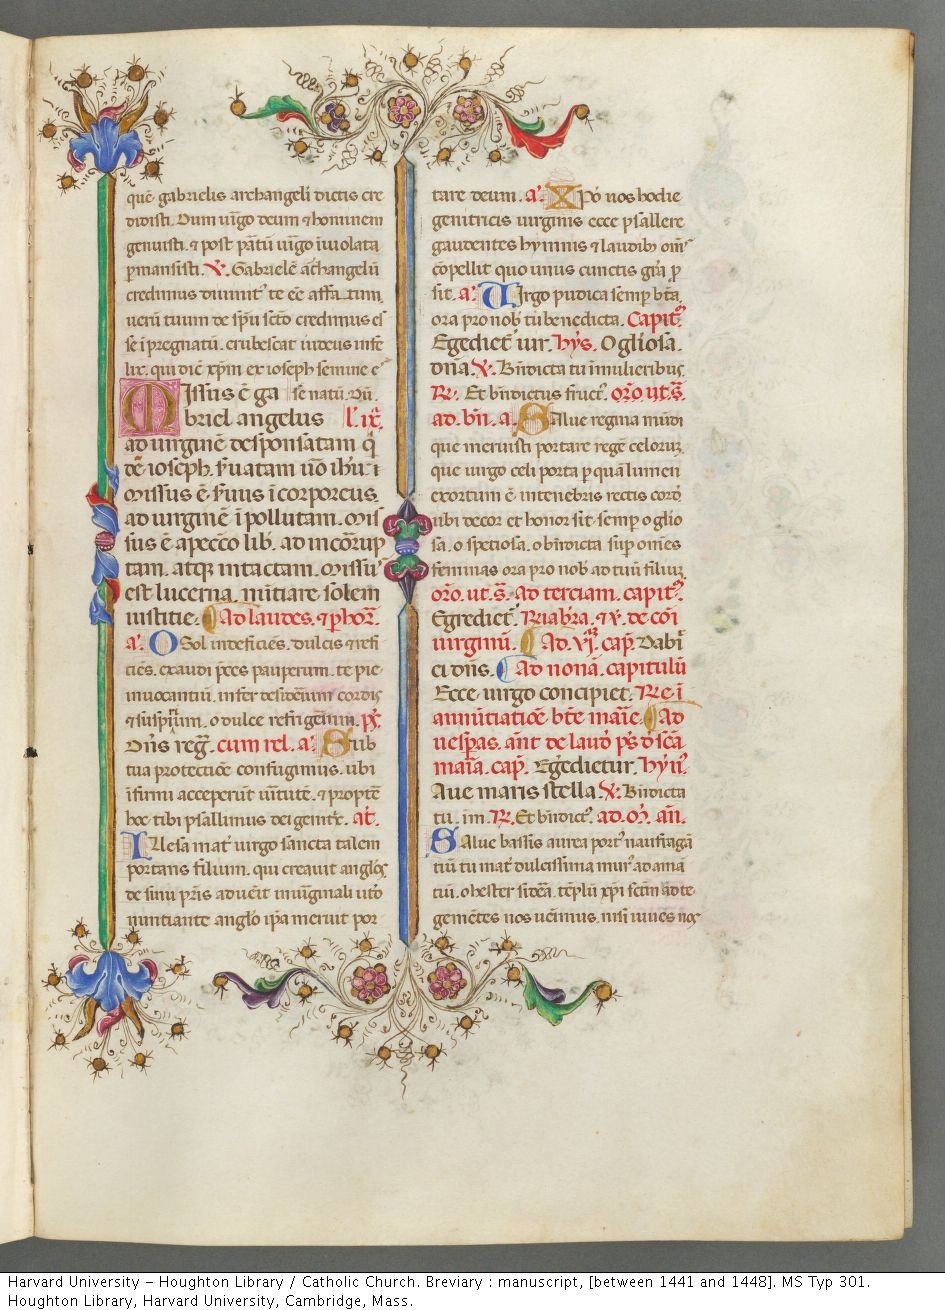 quē gabrielis archangeli dictis cre
didisti. Dum uirgo deum ⁊ hominem
genuisti. ⁊ post partū uirgo īuiolata
ꝑmansisti. ℣. Gabrielē archangelū
credimus diuinitꝰ te eē affatum.
uterū tuum de spū scto credimus eē
se īpregnatū. erubescat iudeus infe
lix. qui dic̄ xpm ex ioseph semine eē
Missus ē ga se natū. Dū.
briel angelus l'. ix.
ad uirginē desponsatam q̄
dē ioseph. seruatam uō ihū. ī
Missus ē. seruus īcorporeus.
ad uirginē īpollutam. Mis
sus ē apeccō lib. ad incōrup
tam. atqꝫ intactam. Missus
est lucerna. nūtiare solem
iustitie. Ad laudes. ⁊ ꝑ hor.
a. O Sol indeficiēs. dulcis ⁊ refi
ciēs. exaudi pces pauperum. te pie
inuocantiū. infer desideriū cordis
⁊ suspirium. o dulce refrigeriū. ps.
Dn̄s reg. cum rel. a. Sub
tua protectiōe confugimus. ubi
īfirmi acceperūt uirtutē. ⁊ propte
hoc tibi psallimus dei genitr. at.
Illesa mat uirgo sancta talem
portans filium. qui creauit anglos
de sinu pris aduēit inuirginali utō
nuntiante anglo ipa meruit por
tare deum. a. Xpō nos hodie
genitricis uirginis ecce psallere
gaudentes hymnis ⁊ laudibꝫ om̄s
cōpellit quo unus cunctis gr̄a p
sit. a. Uirgo pudica semp bta
ora pro nob tu benedicta. Capit.
Egrediet uir. hys. O gliosa.
dn̄a. ℣. Bn̄dicta tu inmulieribus.
℟. Et bn̄dictus fruct. orō. ut. s.
ad. bn̄. a. Salue regina mūdi
que meruisti portare regē celoruꝫ.
que uirgo celi porta ꝑ quā lumen
exortum ē. intenebris rectis cord
ubi decor et honor sit. semp o glio
sa. o spetiosa. o bn̄dicta sup om̄es
feminas ora pro nob ad tuū filiuꝫ.
orō. ut. s. Ad terciam. capit.
Egrediet. Rn̄abra. ⁊ ℣. de cōi
uirginū. Ad. vi. cap. Dabit
ei dn̄s. Ad nonā. capitulū
Ecce. uirgo concipiet. Re ī
annūtiatiōe bte marie. Ad
uesperas. ant de laud ps d scā
maria. cap. Egredietur. hyn.
Aue maris stella. ℣. Bn̄dicta
tu. ī m. ℟. Et bn̄dict. ad. m. an.
Salue bassis aurea port naufragā
tiū tu mat dulcissima mur ad ama
tiū. o hester siteā. teplū xpi scm̄ ad te
gemētes nos uēimus. nisi iuues nos
Harvard University – Houghton Library / Catholic Church. Breviary : manuscript, [between 1441 and 1448]. MS Typ 301.
Houghton Library, Harvard University, Cambridge, Mass.